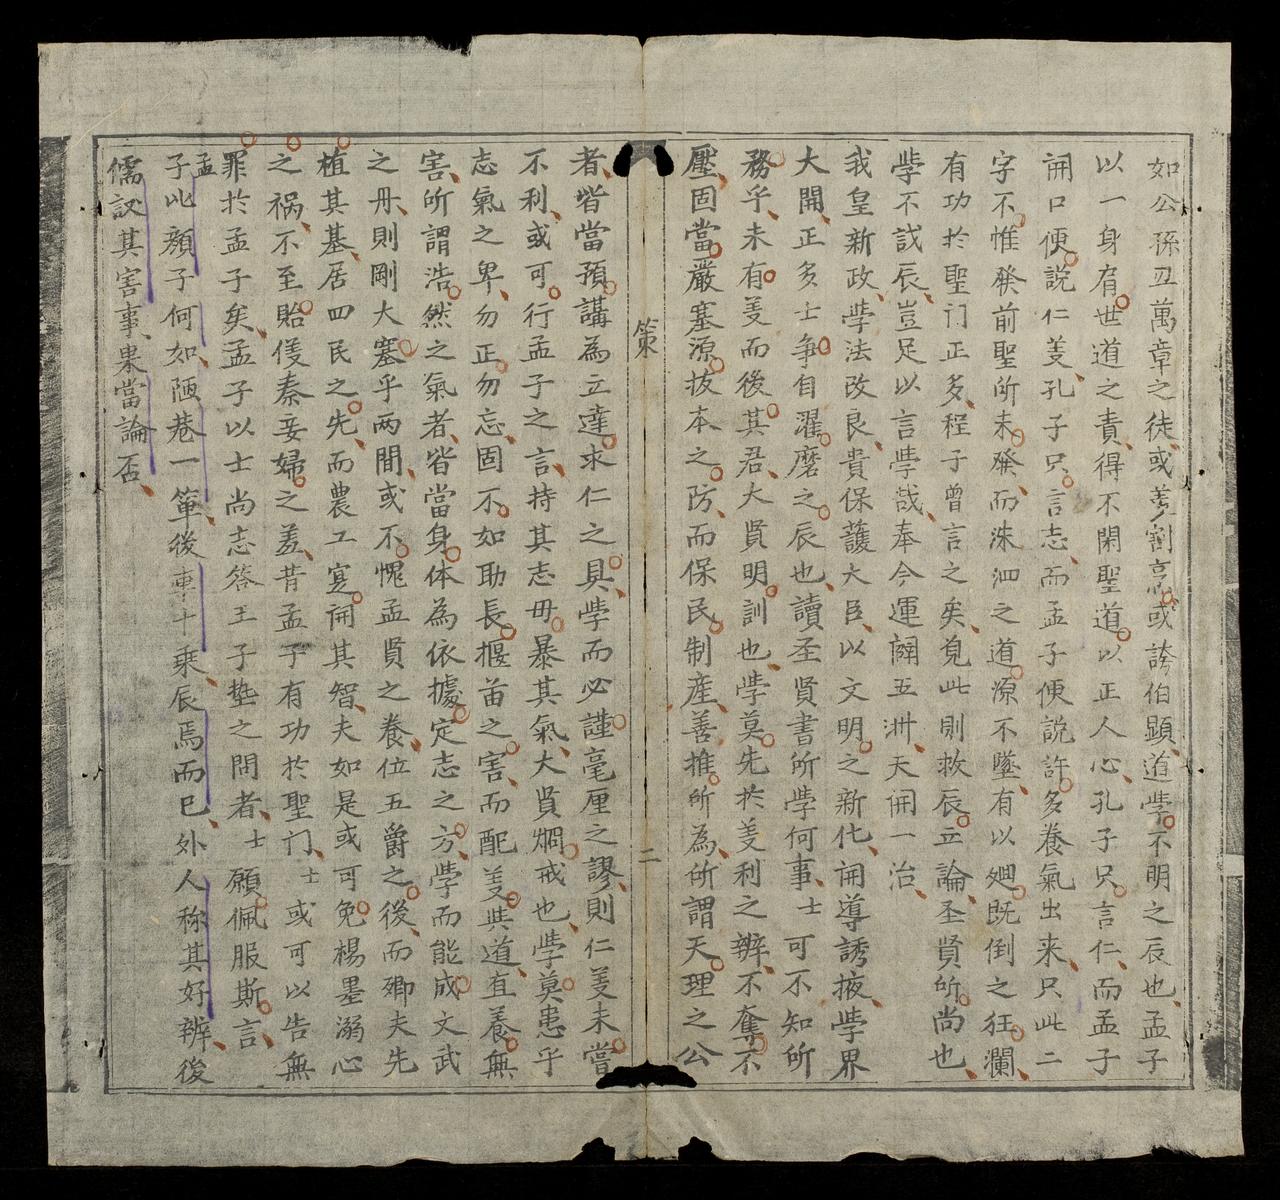 如公孫丑萬章之徒或羑割烹或誇伯顕道學不明之辰也孟子
以一身肩世道之責得不閑聖道以正人心孔子只言仁而孟子
開口便説仁羑孔子只言志而孟子便説許多養氣出来只此二
字不惟發前聖所未發而洙泗之道源不墜有以廻既倒之狂瀾
有功於聖门正多程子曾言之矣見此則救辰立論圣賢所尚也
學不識辰豈足以言學哉奉今運闢五洲天開一治
我皇新政學法改良貴保護大臣以文明之新化開導誘掖學界
大開正多士争自濯磨之辰也讀圣賢書所學何事士可不知所
務乎未有羑而後其君大賢明訓也學莫先於羑利之辨不奪不
壓固當嚴塞源拔本之防而保民制產善推所為所謂天理之公
策
二
者皆當預講為立達求仁之具學而必謹毫厘之謬則仁羑未嘗
不利或可行孟子之言持其志毋暴其氣大賢烱戒也學莫患乎
志氣之卑勿正勿忘固不如助長揠苗之害而配羑與道直養無
害所謂浩然之氣者皆當身体為依據定志之方學而能成文武
之用則剛大塞乎两間或不愧孟賢之養位五爵之後而卿夫先
植其基居四民之先而農工寔開其智夫如是或可免楊墨溺心
之禍不至貽侵秦妾婦之羞昔孟子有功於聖门士或可以告無
罪於孟子矣孟子以士尚志答王子墊之問者士願佩服斯言
孟子此顏子何如陋巷一簞後車十乘辰焉而已外人称其好辨後
儒議其害事果當論否